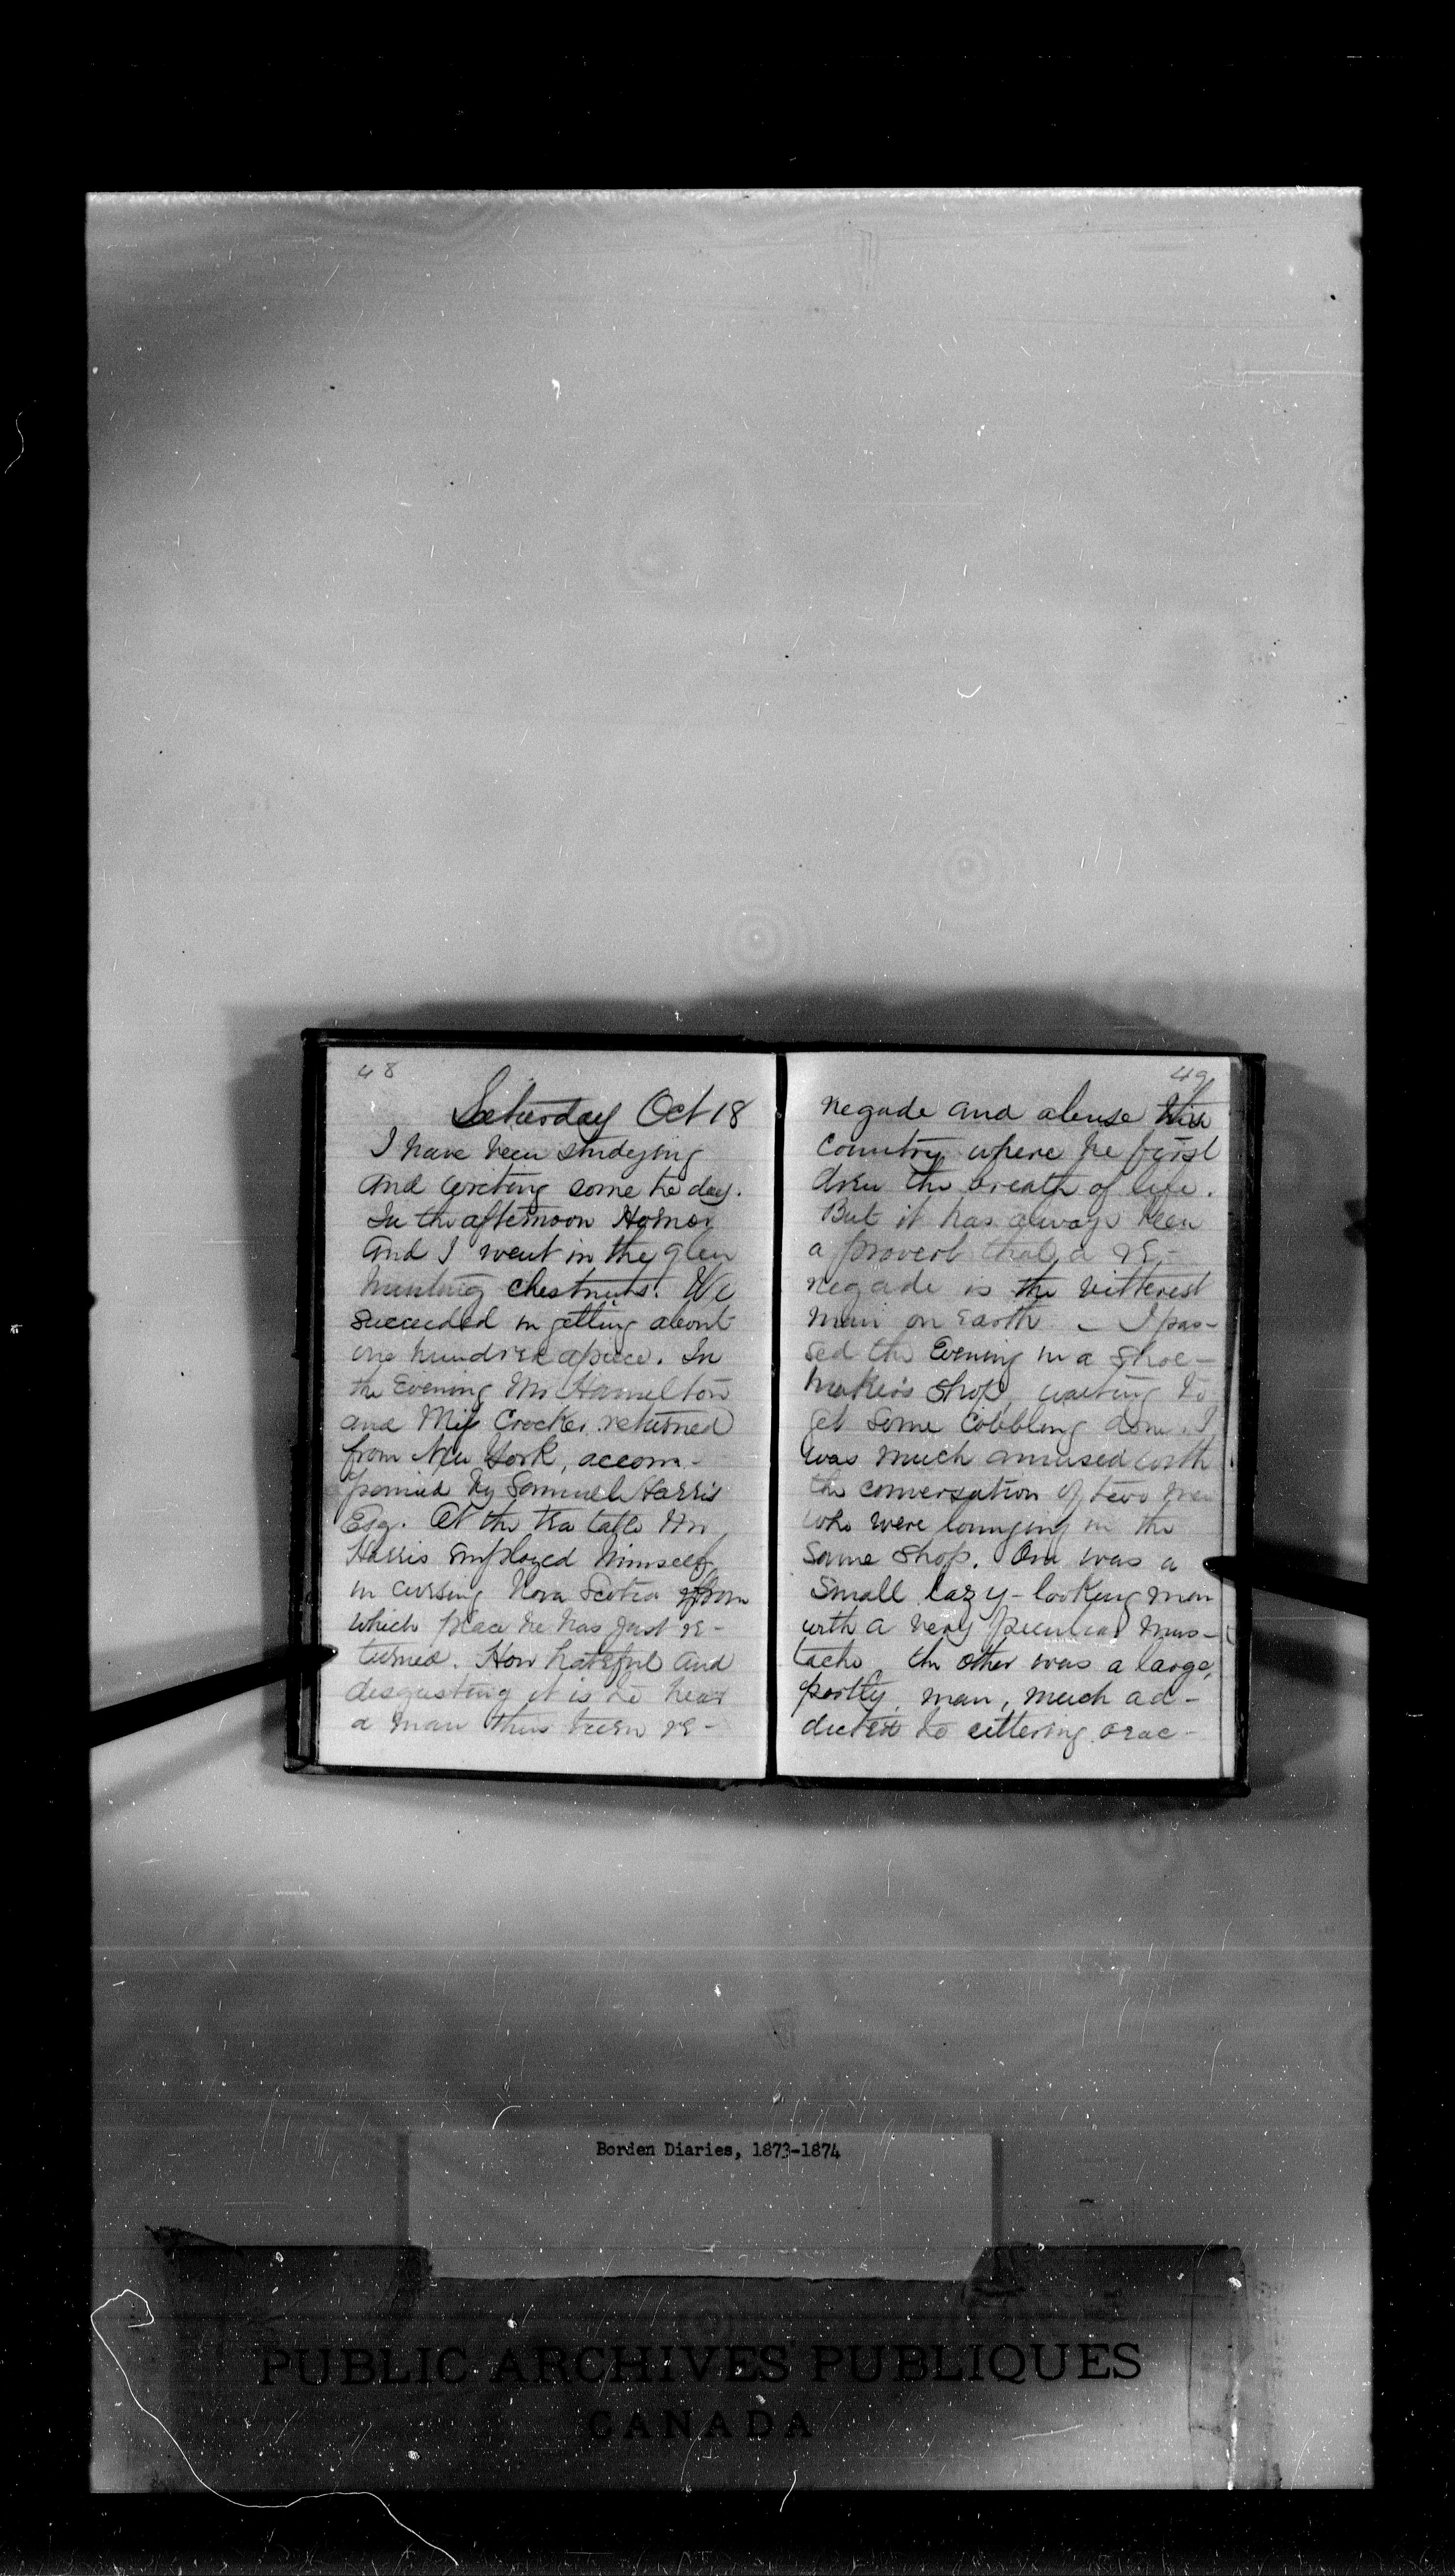 48
Saturday Oct 18
I have been studying
and writing some to day.
In the afternoon Homer
and I went in the glen
hunting chestnuts. We
succeeded in getting about
one hundred apiece. In
the Evening Mr Hamilton
and Miss Crocker returned
from New York, accom-
panied by Samuel Harris
Esq. At the tea table Mr
Harris employed himself
in cursing Nova Scotia from
which place he has just re-
turned. How hateful and
disgusting it is to hear
a man thus turn re-
49
negade and abuse the
country where he first
drew the breath of life.
But it has always been
a proverb that a re-
negade is the bitterest
man on Earth. – I pas-
sed the Evening in a shoe-
maker's shop, waiting to
get some cobbling done. I
was much amused with
the conversation of two men
who were lounging in the
same shop. One was a
small lazy-looking man
with a very peculiar mus-
tache the other was a large,
portly man, much ad-
dicted to uttering orac-
Borden Diaries, 1873-1874
PUBLIC ARCHIVES PUBLIQUES
CANADA